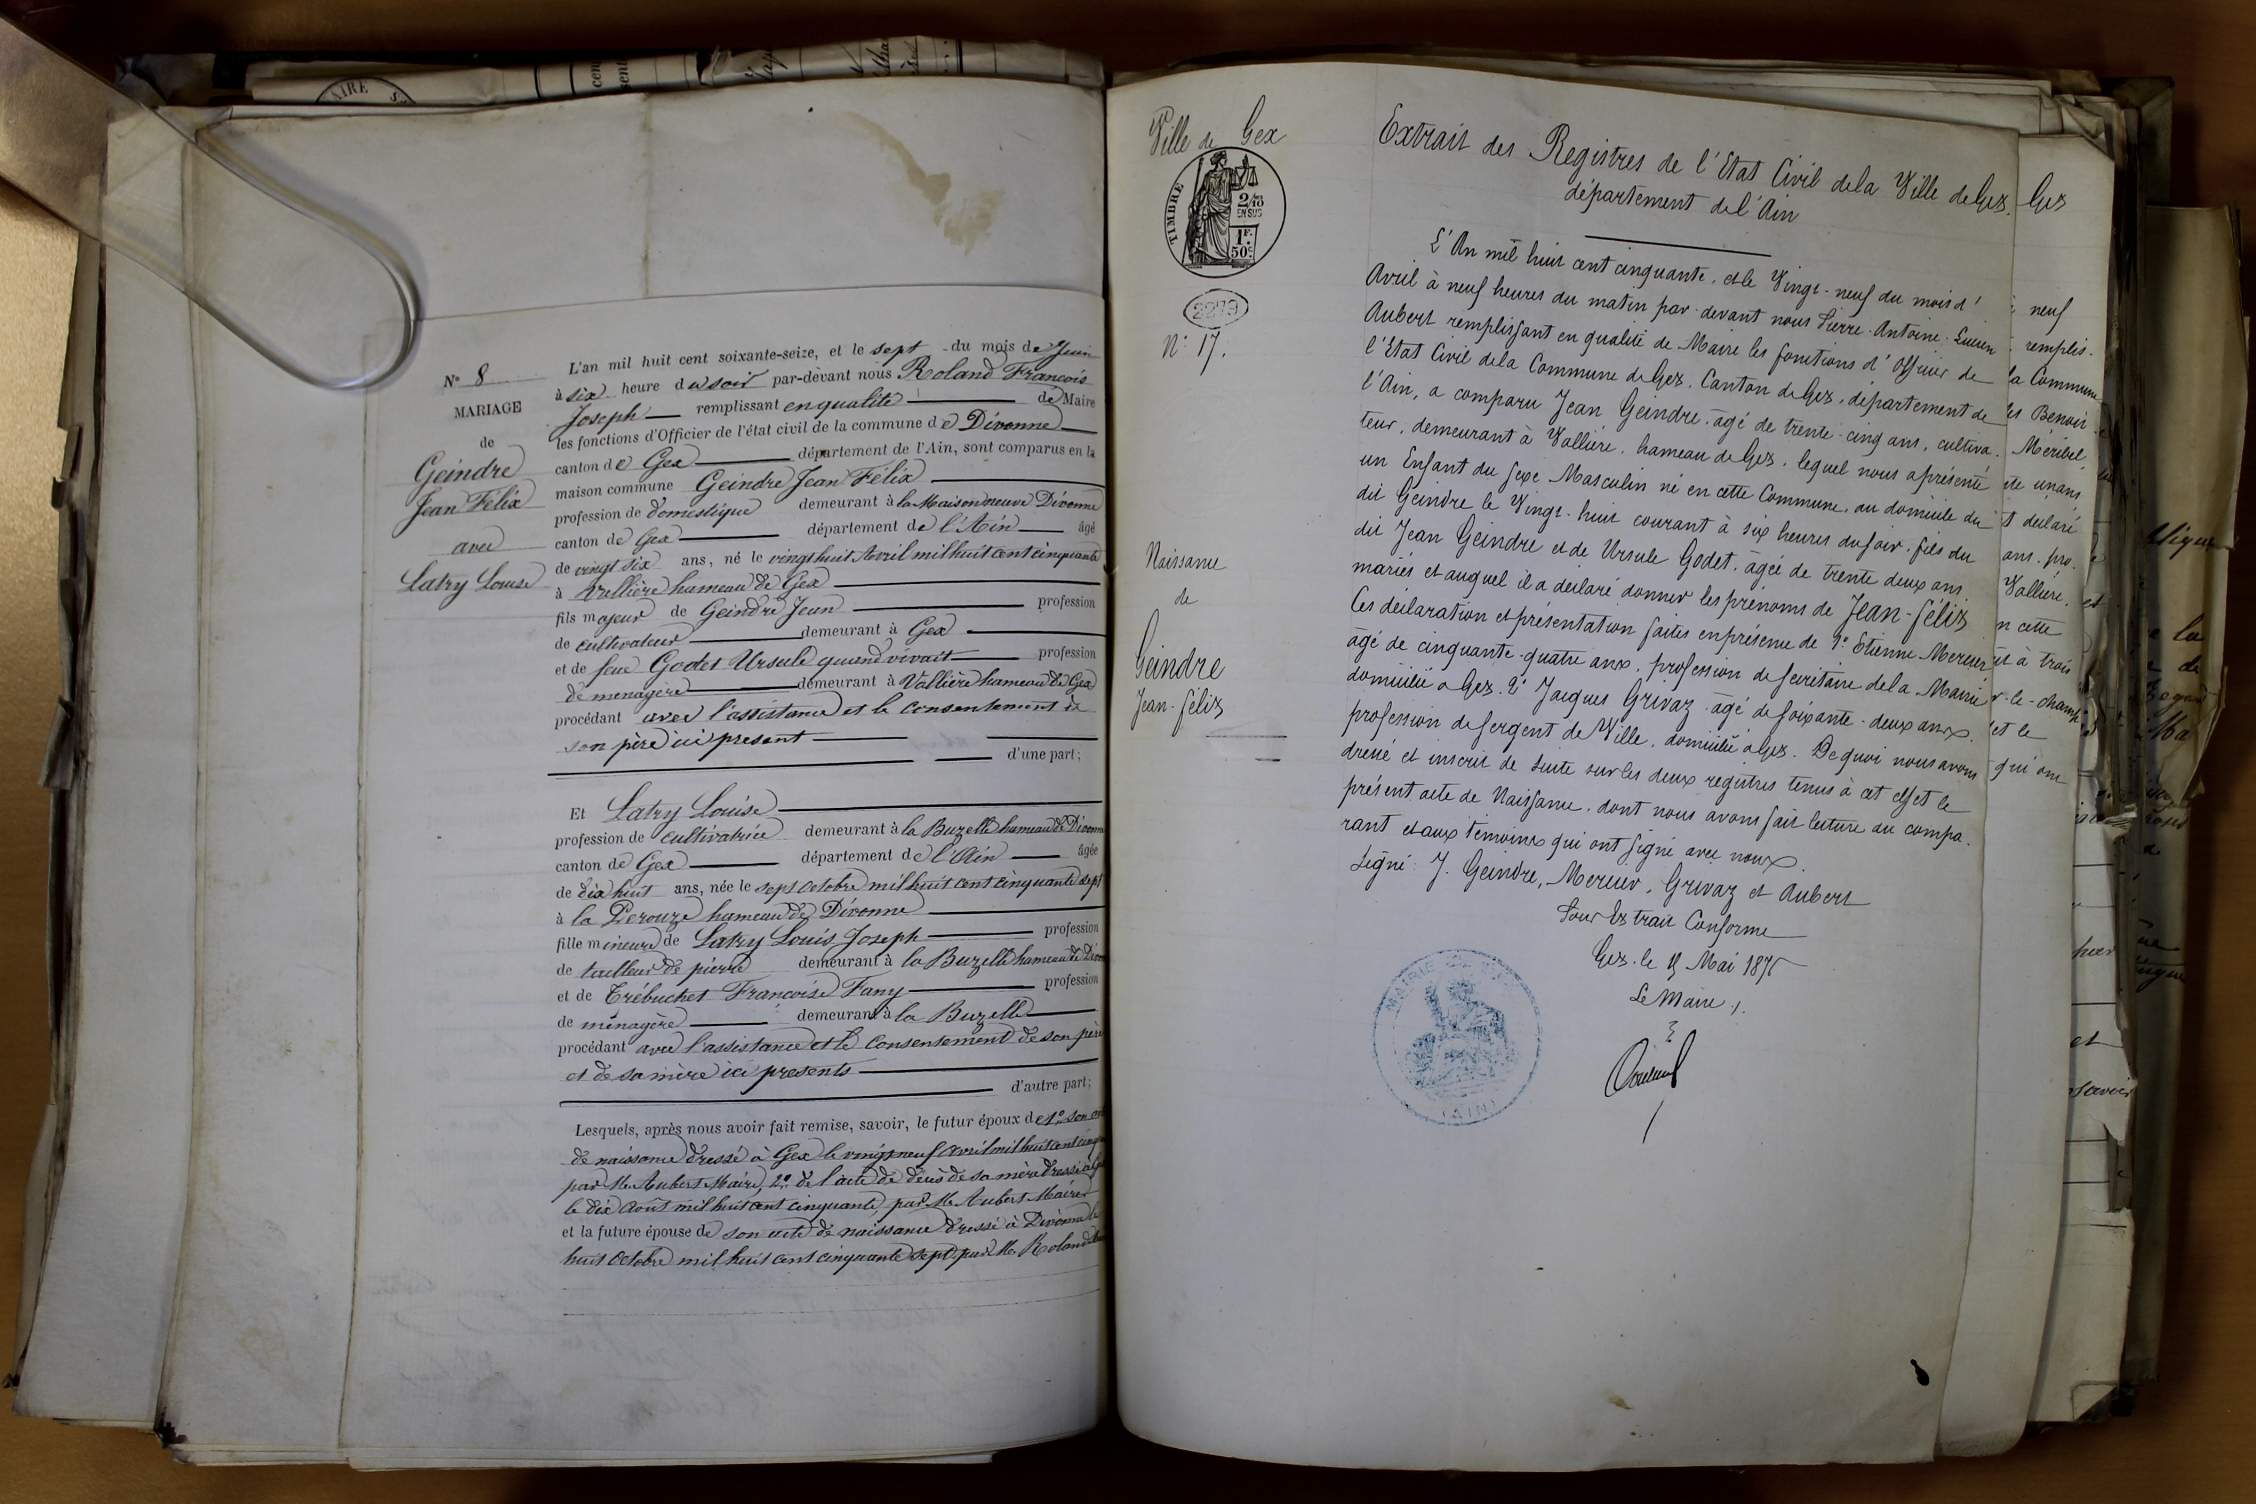 N° 8
MARIAGE
de
Geindre
Jean Félix
avec
Latry Louise
L'an mil huit cent soixante-seize, et le sept du mois de Juin
à six heure du soir par-devant nous Roland François
Joseph remplissant en qualité de Maire
les fonctions d'Officier de l'état civil de la commune de Divonne
canton de Gex département de l'Ain, sont comparus en la
maison commune Geindre Jean Félix
profession de domestique demeurant à la Maison neuve Divonne
canton de Gex département de l'Ain âgé
de vingt six ans, né le vingt huit Avril mil huit cent cinquante
à Vallière hameau de Gex
fils majeur de Geindre Jean profession
de cultivateur demeurant à Gex
et de feue Godet Ursule quand vivait profession
de menagère demeurant à Vallière hameau de Gex
procédant avec l'assistance et le consentement de
son père ici present
d'une part;
Et Latry Louise
profession de cultivatrice demeurant à la Buzelle hameau de Divonne
canton de Gex département de l'Ain âgée
de dix huit ans, née le sept octobre mil huit cent cinquante sept
à la Perouze hameau de Divonne
fille mineure de Latry Louis Joseph profession
de tailleur de pierre demeurant à la Buzelle hameau de
et de Trébuchet Françoise Fany profession
de ménagère demeurant à la Buzelle
procédant avec l'assistance et le consentement de son père
et de sa mère ici presents
d'autre part;
Lesquels, après nous avoir fait remise, savoir, le futur époux de 1° son
de naissance dressé à Gex le vingt neuf avril mil huit cent
par Me Aubert Maire, 2° de l'acte de décès de sa mère dressé à
le dix août mil huit cent cinquante, par Me Aubert Maire
et la future épouse de son acte de naissance dressé à Divonne le
huit Octobre mil huit cent cinquante sept par Me Roland
Ville de Gex
TIMBRE
2/10
EN SUS
1F.
50c.
2279
N° 17.
Naissance
de
Geindre
Jean-félix
Extrait des Registres de l'Etat Civil de la Ville de Gex.
département de l'Ain
L'An mil huit cent cinquante, et le Vingt-neuf du mois d'
Avril à neuf heures du matin par-devant nous Pierre-Antoine-Lucien
Aubert remplissant en qualité de Maire les fonctions d'Officier de
l'Etat Civil de la Commune de Gex, Canton de Gex, département de
l'Ain, a comparu Jean Geindre âgé de trente-cinq ans, cultiva-
teur, demeurant à Vallière, hameau de Gex, lequel nous a présenté
un Enfant du sexe Masculin né en cette Commune, au domicile du
dit Geindre le Vingt-huit courant à six heures du soir, fils du
dit Jean Geindre et de Ursule Godet, âgée de trente deux ans
mariés et auquel il a déclaré donner les prénoms de Jean-félix
Ces déclaration et présentation faites en présence de 1° Etienne Mercier
âgé de cinquante-quatre ans, profession de secrétaire de la Mairie
domicilié à Gex. 2° Jacques Grivaz âgé de soixante-deux ans.
profession de sergent de Ville, domicilié à Gex. De quoi nous avons
dressé et inscrit de suite sur les deux registres tenus à cet effet le
présent acte de Naissance, dont nous avons fait lecture au compa-
rant et aux témoins qui ont signé avec nous.
Signé: J. Geindre, Mercier, Grivaz et Aubert
Pour Extrait Conforme
Gex, le 15 Mai 1876
Le Maire,
MAIRIE DE GEX
(AIN)
Gex
neuf
remplis-
la Commune
Benoit
Méribel
te un ans
t déclaré
ans, pro-
Vallière,
n cette
à trois
r-le-champ
et le
qui ont